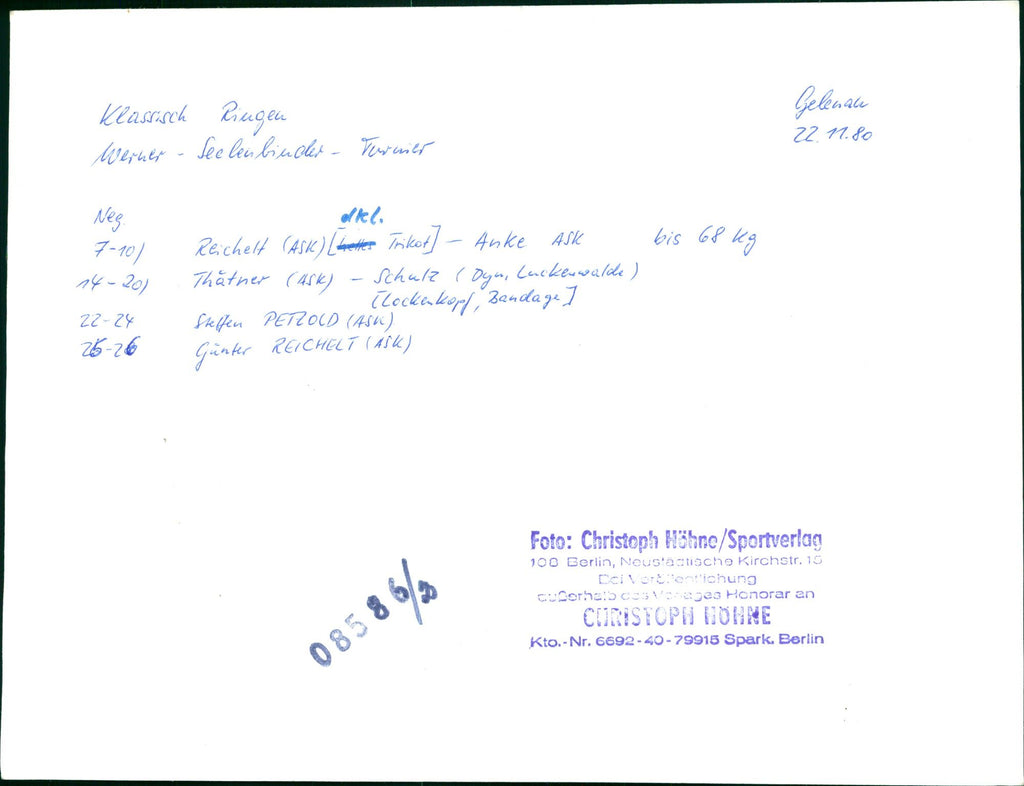 Klassisch Ringen
Gelenau
Werner-Seelenbinder-Turnier
22.11.80
Neg.
dkl.
7-10) Reichelt (ASK) [heller Trikot] – Anke ASK bis 68 kg
14-20) Thätner (ASK) – Schulz (Dyn. Luckenwalde)
[Lockenkopf, Bandage]
22-24 Steffen PETZOLD (ASK)
25-26 Günter REICHELT (ASK)
Foto: Christoph Höhne/Sportverlag
108 Berlin, Neustädtische Kirchstr. 15
Bei Veröffentlichung
außerhalb des Verlages Honorar an
CHRISTOPH HÖHNE
Kto.-Nr. 6692-40-79915 Spark. Berlin
08586/3